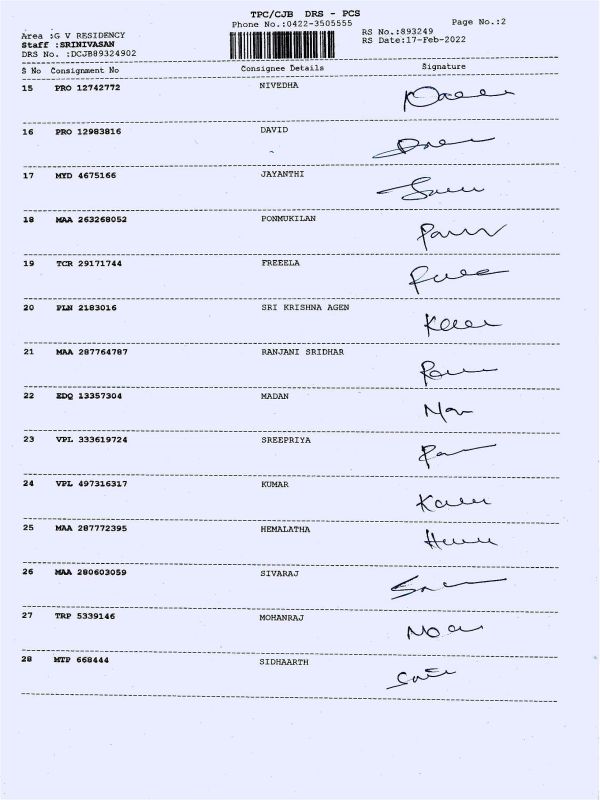 TPC/CJB DRS - PCS
Phone No.:0422-3505555
Page No.:2
Area :G V RESIDENCY
RS No.:893249
Staff :SRINIVASAN
RS Date:17-Feb-2022
DRS No. :DCJB89324902
S No Consignment No Consignee Details Signature
15 PRO 12742772 NIVEDHA
16 PRO 12983816 DAVID
17 MYD 4675166 JAYANTHI
18 MAA 263268052 PONMUKILAN
19 TCR 29171744 FREEELA
20 PLN 2183016 SRI KRISHNA AGEN
21 MAA 287764787 RANJANI SRIDHAR
22 EDQ 13357304 MADAN
23 VPL 333619724 SREEPRIYA
24 VPL 497316317 KUMAR
25 MAA 287772395 HEMALATHA
26 MAA 280603059 SIVARAJ
27 TRP 5339146 MOHANRAJ
28 MTP 668444 SIDHAARTH